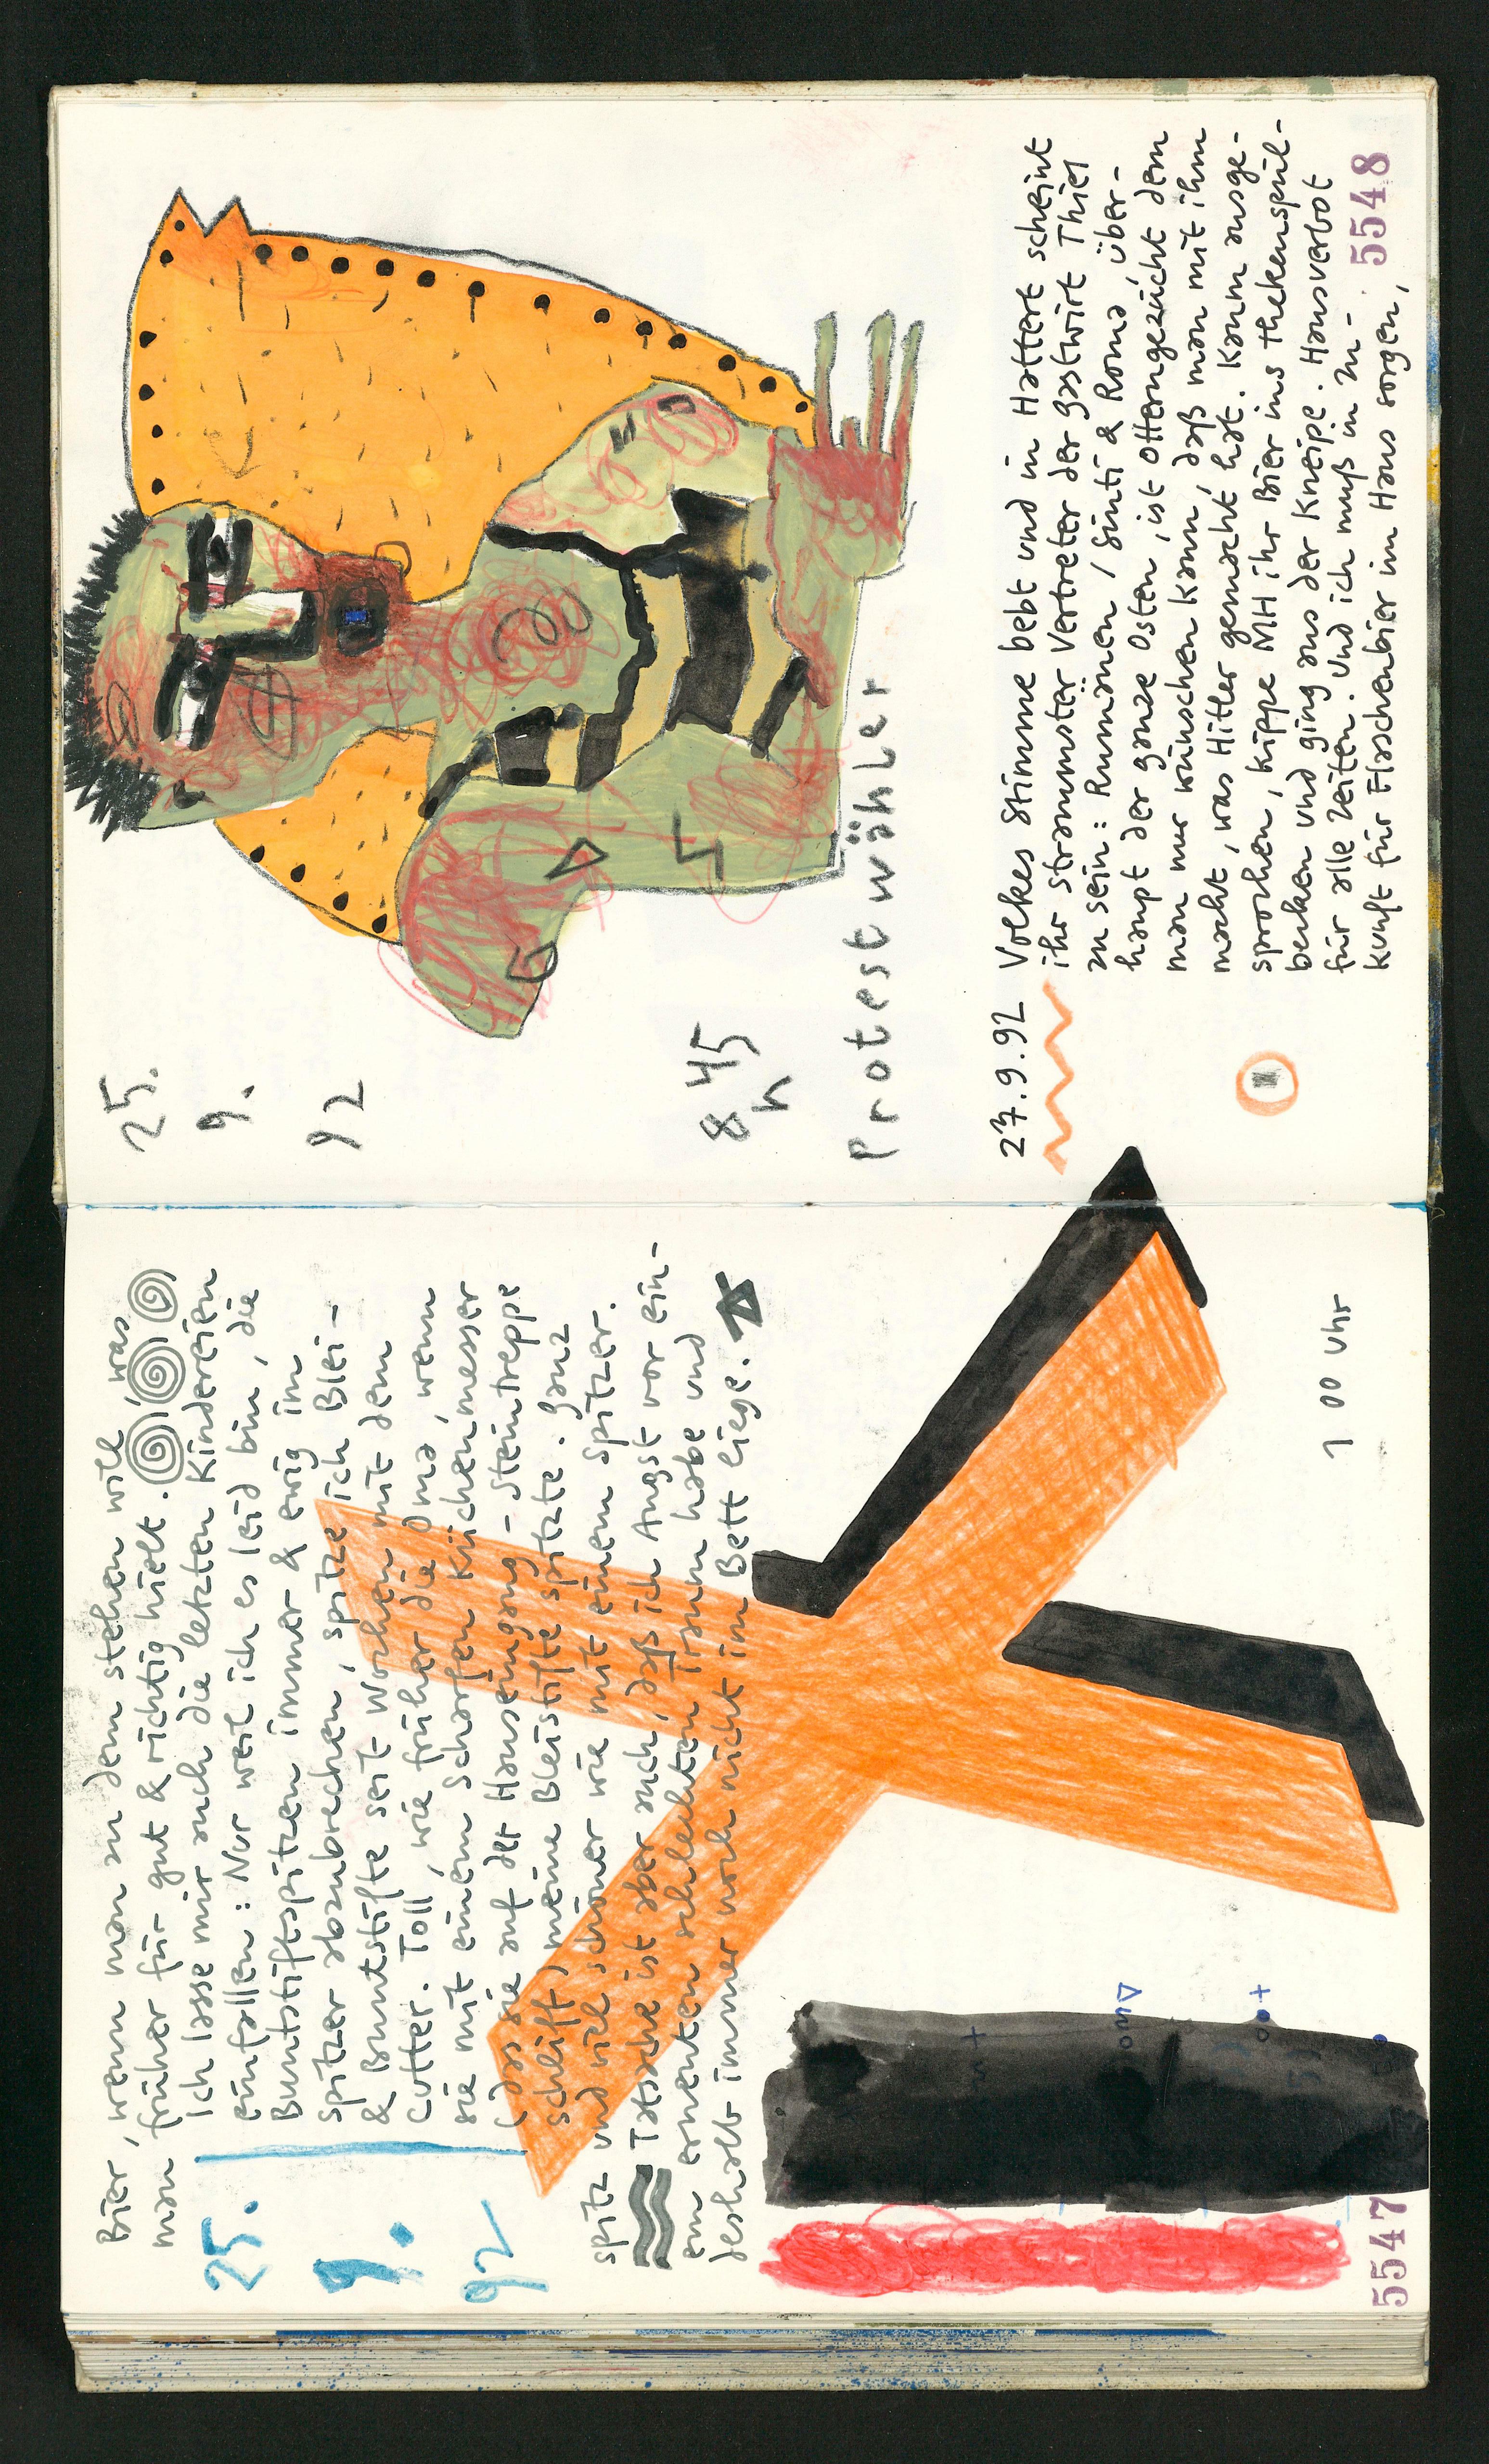 Bier, wenn man zu dem stehen will, was
man früher für gut & richtig hielt.
25.
9.
92
Ich lasse mir auch die letzten Kindereien
einfallen: Nur weil ich es leid bin, die
Buntstiftspitzen immer & ewig im
Spitzer abzubrechen, spitze ich Blei-
& Buntstifte seit Wochen mit dem
Cutter. Toll, wie früher die Oma, wenn
sie mit einem scharfen Küchenmesser
(das sie auf der Hauseingang-Steintreppe
schliff) meine Bleistifte spitzte. Ganz
spitz und viel schöner wie mit einem Spitzer.
Tatsache ist aber auch, daß ich Angst vor ein-
em erneuten schlechten Traum habe und
deshalb immer noch nicht im Bett liege.
1 00 Uhr
5547
25.
9.
92
8 45
h
Protestwähler
27.9.92
Volkes Stimme bebt und in Hattert scheint
ihr strammster Vertreter der Gastwirt Thiel
zu sein: Rumänen, Sinti & Roma, über-
haupt der ganze Osten, ist Otterngezücht dem
man nur wünschen kann, daß man mit ihm
macht, was Hitler gemacht hat. Kaum ausge-
sprochen, kippe MH ihr Bier ins Thekenspül-
becken und ging aus der Kneipe. Hausverbot
für alle Zeiten. Und ich muß in Zu-
kunft für Flaschenbier im Haus sorgen,
5548